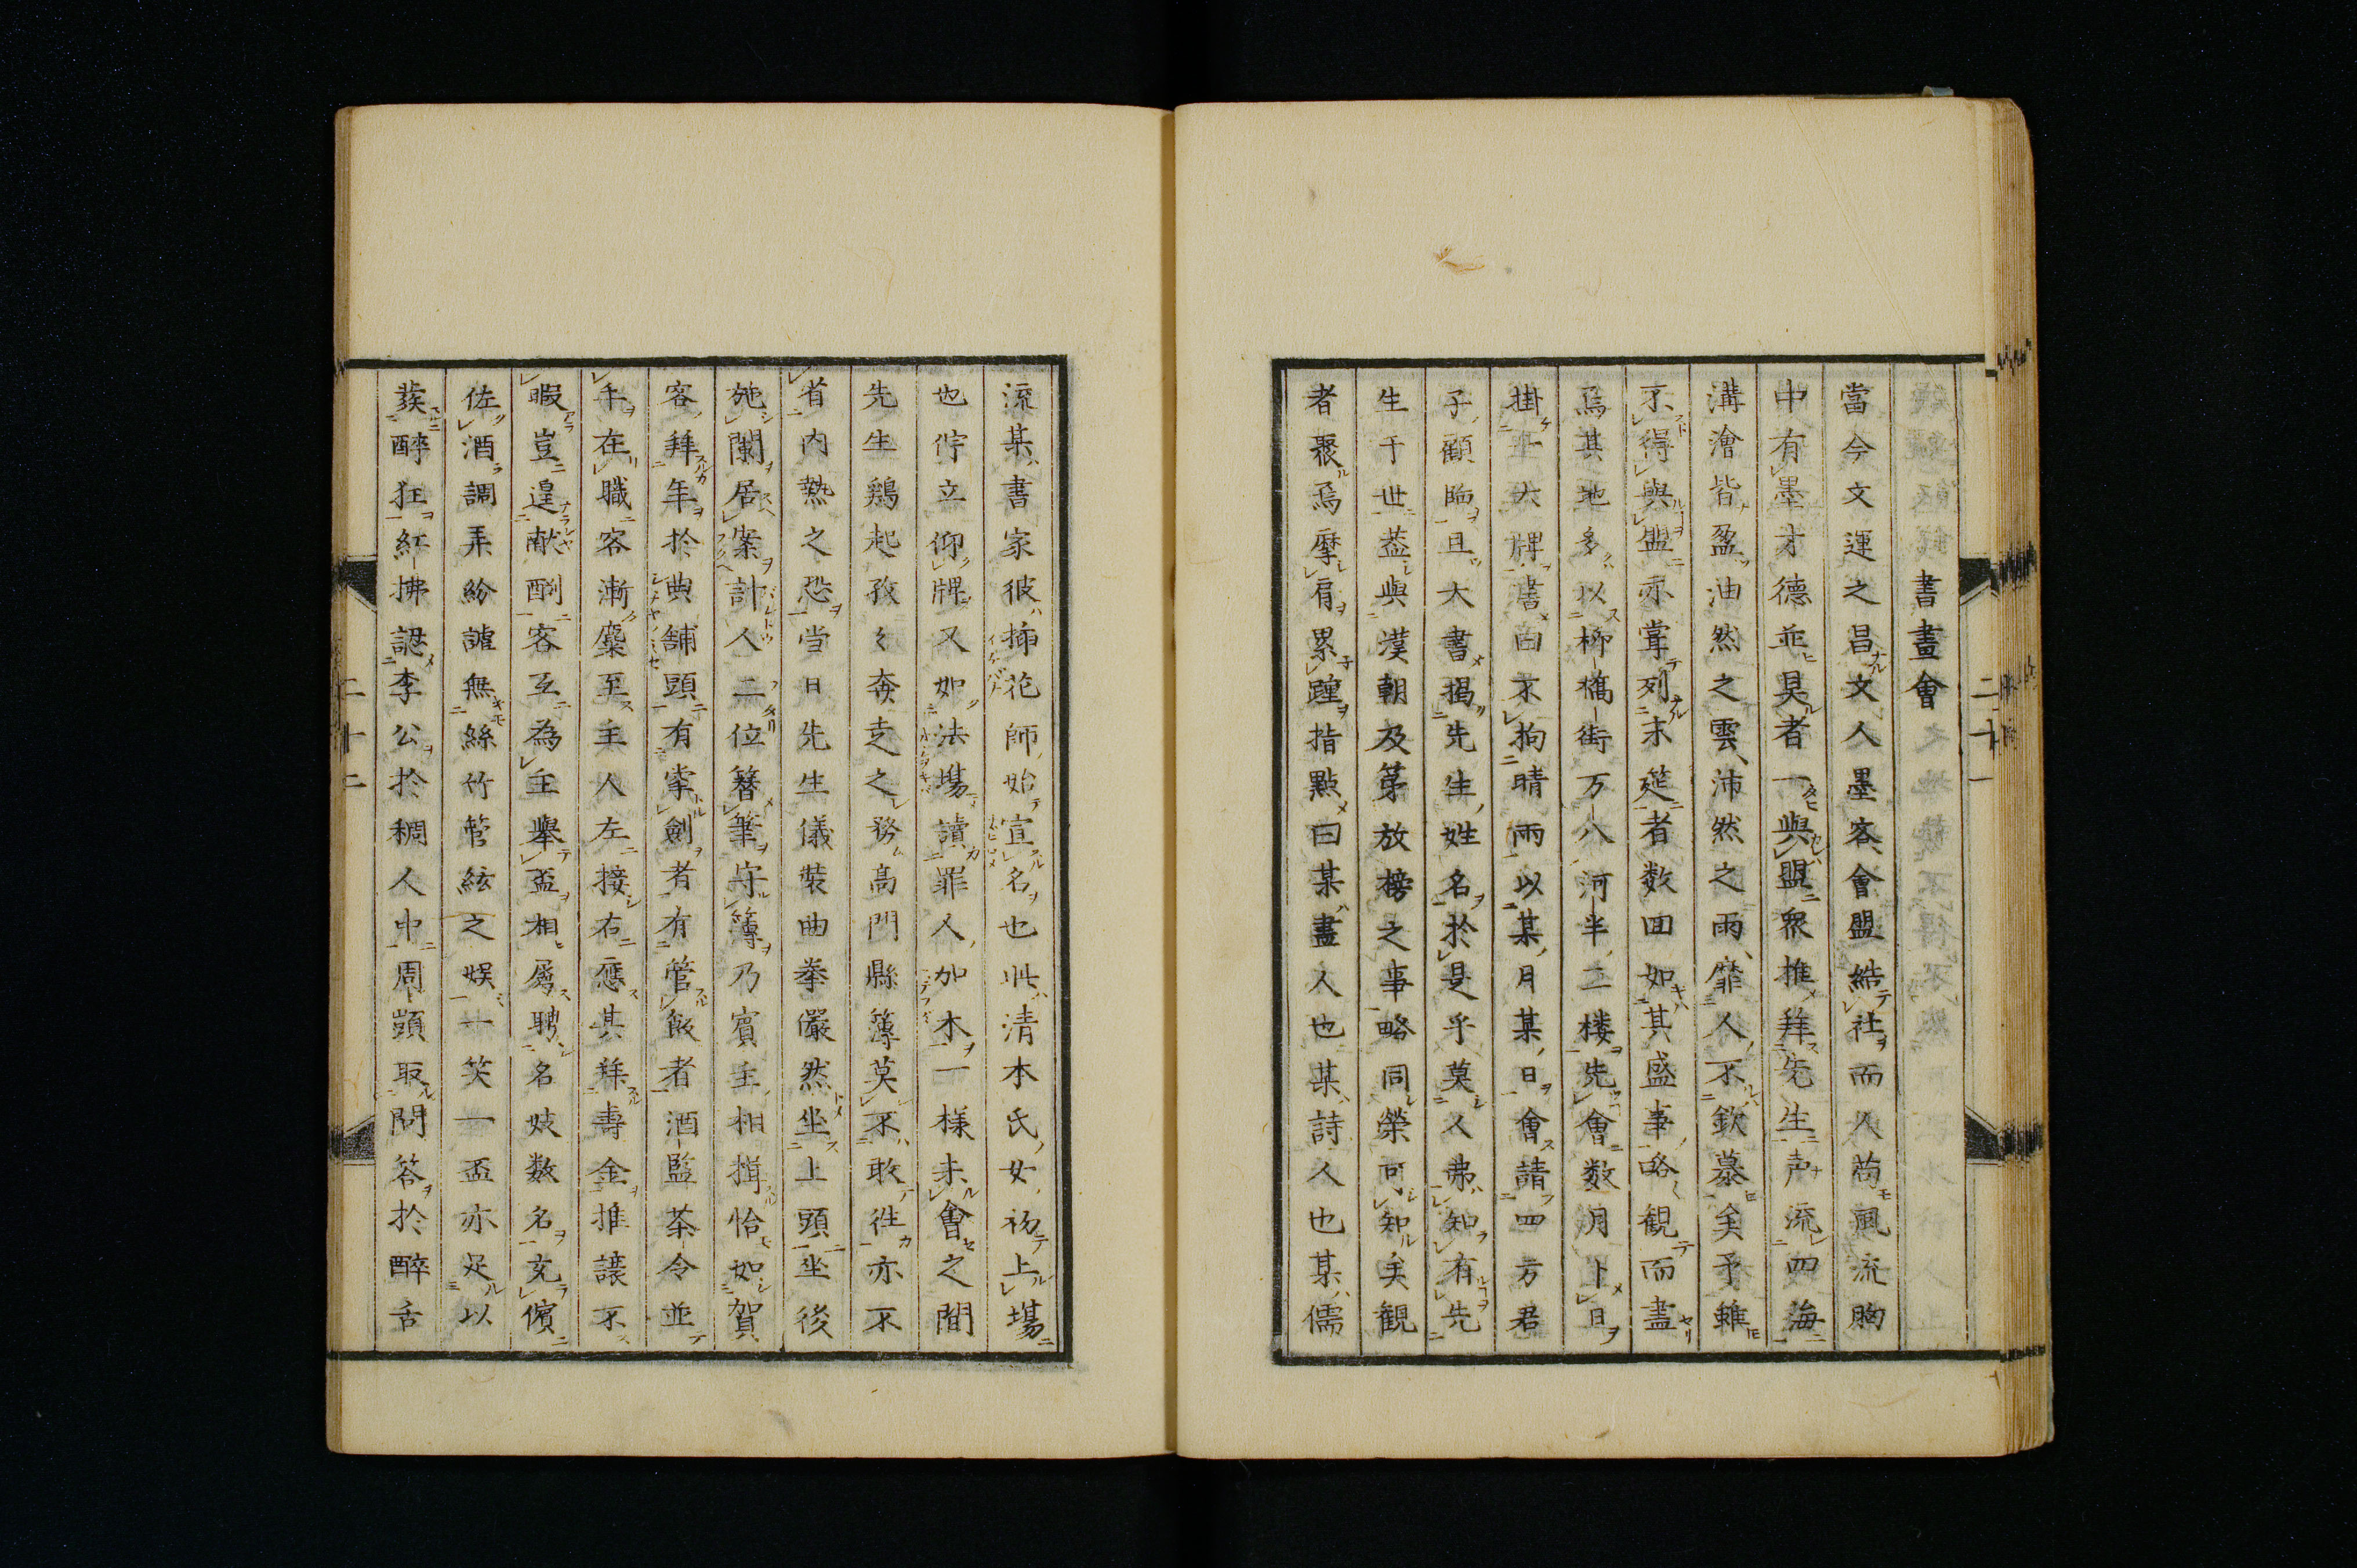 書畫會
當今文運之昌文人墨客會盟結社而人茍風流胸
中有墨才德並具者一與盟衆推拜先生声流四海
溝澮皆盈油然之雲沛然之雨靡人不欽慕矣予雖
不得與盟亦甞列末筵者数回如其盛事略観而盡
焉其地多以柳橋街万八河半二楼先會数月卜日
掛一大牌書曰不拘晴雨以某月某日會請四方君
子顧臨且大書掲先生姓名於是乎莫人弗知有先
生于世蓋與漢朝及第放榜之事略同榮可知矣観
者聚焉摩肩累踵指點曰某畫人也某詩人也某儒
流某書家彼挿花師始宣名也此清本氏女初上場
也佇立仰牌又如法場讀罪人加木一様未會之間
先生鶏起孜々奔走之務高門縣簿莫不敢徃亦不
省内熱之恐当日先生儀裝曲拳儼然坐上頭坐後
施闌居案計人二位簪筆守簿乃賓主相揖恰如賀
客拜年於典舗頭有掌劍者有管飯者酒監茶令並
手在職客漸麇至主人左接右應其拜壽金推讓不
暇豈遑献酬客互為主舉盃相屬聘名妓数名充儐
佐酒調弄紛謔無絲竹管絃之娯一笑一盃亦足以
蔟醉狂紅拂認李公於稠人中周顗取問答於醉舌
二十一
二十二